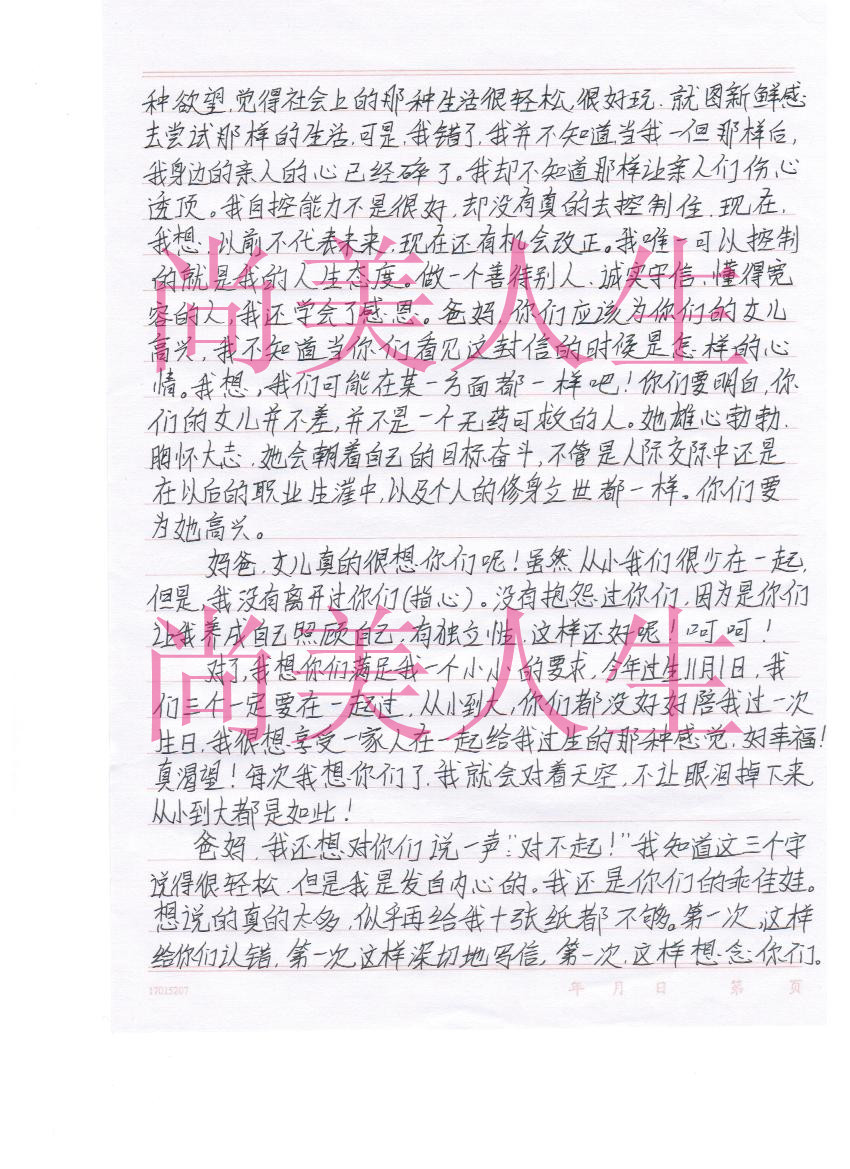 种欲望，觉得社会上的那种生活很轻松，很好玩，就图新鲜感
去尝试那样的生活，可是，我错了，我并不知道，当我一但那样后，
我身边的亲人的心已经碎了。我却不知道那样让亲人们伤心
透顶。我自控能力不是很好，却没有真的去控制住，现在，
我想，以前不代表未来，现在还有机会改正。我唯一可以控制
的就是我的人生态度。做一个善待别人、诚实守信、懂得宽
容的人，我还学会了感恩。爸妈，你们应该为你们的女儿
高兴，我不知道当你们看见这封信的时候是怎样的心
情。我想，我们可能在某一方面都一样吧！你们要明白，你
们的女儿并不差，并不是一个无药可救的人。她雄心勃勃，
胸怀大志，她会朝着自己的目标奋斗，不管是人际交际中还是
在以后的职业生涯中，以及个人的修身立世都一样。你们要
为她高兴。
妈爸，女儿真的很想你们呢！虽然从小我们很少在一起，
但是，我没有离开过你们（指心）。没有抱怨过你们，因为是你们
让我养成自己照顾自己，有独立性，这样还好呢！呵呵！
对了，我想你们满足我一个小小的要求，今年过生11月1日，我
们三个一定要在一起过，从小到大，你们都没好好陪我过一次
生日，我很想享受一家人在一起给我过生的那种感觉，好幸福！
真渴望！每次我想你们了，我就会对着天空，不让眼泪掉下来，
从小到大都是如此！
爸妈，我还想对你们说一声：“对不起！”我知道这三个字
说得很轻松，但是我是发自内心的。我还是你们的乖佳娃。
想说的真的太多，似乎再给我十张纸都不够。第一次，这样
给你们认错，第一次，这样深切地写信，第一次，这样想念你们。
17015207
年 月 日 第 页
尚美人生
尚美人生